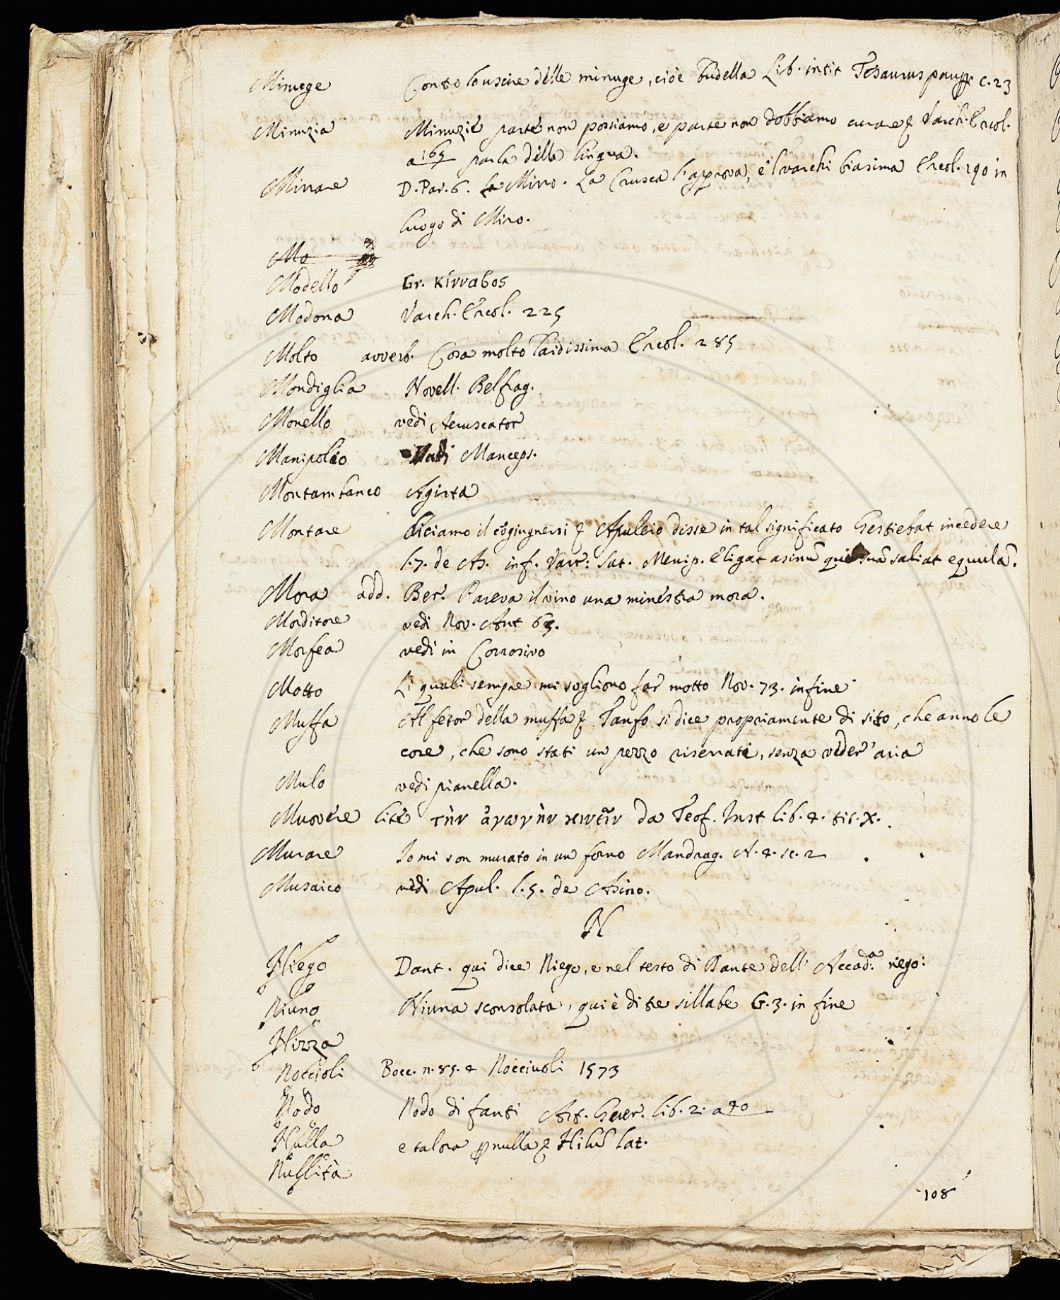 Minuge Contro l'uscire delle minuge, cioè budella Lib. intit Tesaurus paup. c. 23
Minuzia Minuzie parte non possiamo, e parte non dobbiamo curare Varch. Ercol.
a 165 parla della lingua.
Mirrare D. Par. 6. Mirro. La Crusca l'approva, e'l varchi biasima Ercol. 190 in
luogo di Miro.
Mo
Modello Gr. κίνναβος
Modona Varch. Ercol. 225
Molto avverb. Cosa molto laidissima Ercol. 285
Mondiglia Novell. Belfag.
Monello vedi Aeruscator
Manipolio Vedi Manceps.
Montambanco Agirta
Montare diciamo il cōgiugnersi Apuleio disse in tal significato Gestiebat incedere
l. 7. de As. inf. Varr. Sat. Menip. Eligat asinū qui suā saliat equulā.
Mora add. Ber. Pareva il vino una minestra mora.
Morditore vedi Nov. Ant 63.
Morfea vedi in Corrosivo
Motto Li quali sempre mi sogliono far motto Nov. 73. in fine
Muffa Al fetor della muffa Tanfo si dice propriamente di sito, che anno le
cose, che sono stati un pezzo riserrate, senza veder' aria
Mulo vedi pianella.
Muovere lite τὴν ἀγωγὴν κινεῖν da Teof. Inst lib. 4. tit. X.
Murare Io mi son murato in un forno Mandrag. A. 4. sc. 2
Musaico vedi Apul. l. 5. de Asino.
N
Niego Dant. qui dice Niego, e nel testo di Dante delli Accad. niego:
Niuno Niuna sconsolata, qui è di tre sillabe G. 3. in fine
Nizza
Noccioli Bocc. n. 85. 4 Nocciuoli 1573
Nodo Nodo di fanti Art. Guer. lib. 2. a 40
Nulla e talora nulla Hilū lat.
Nullità
108